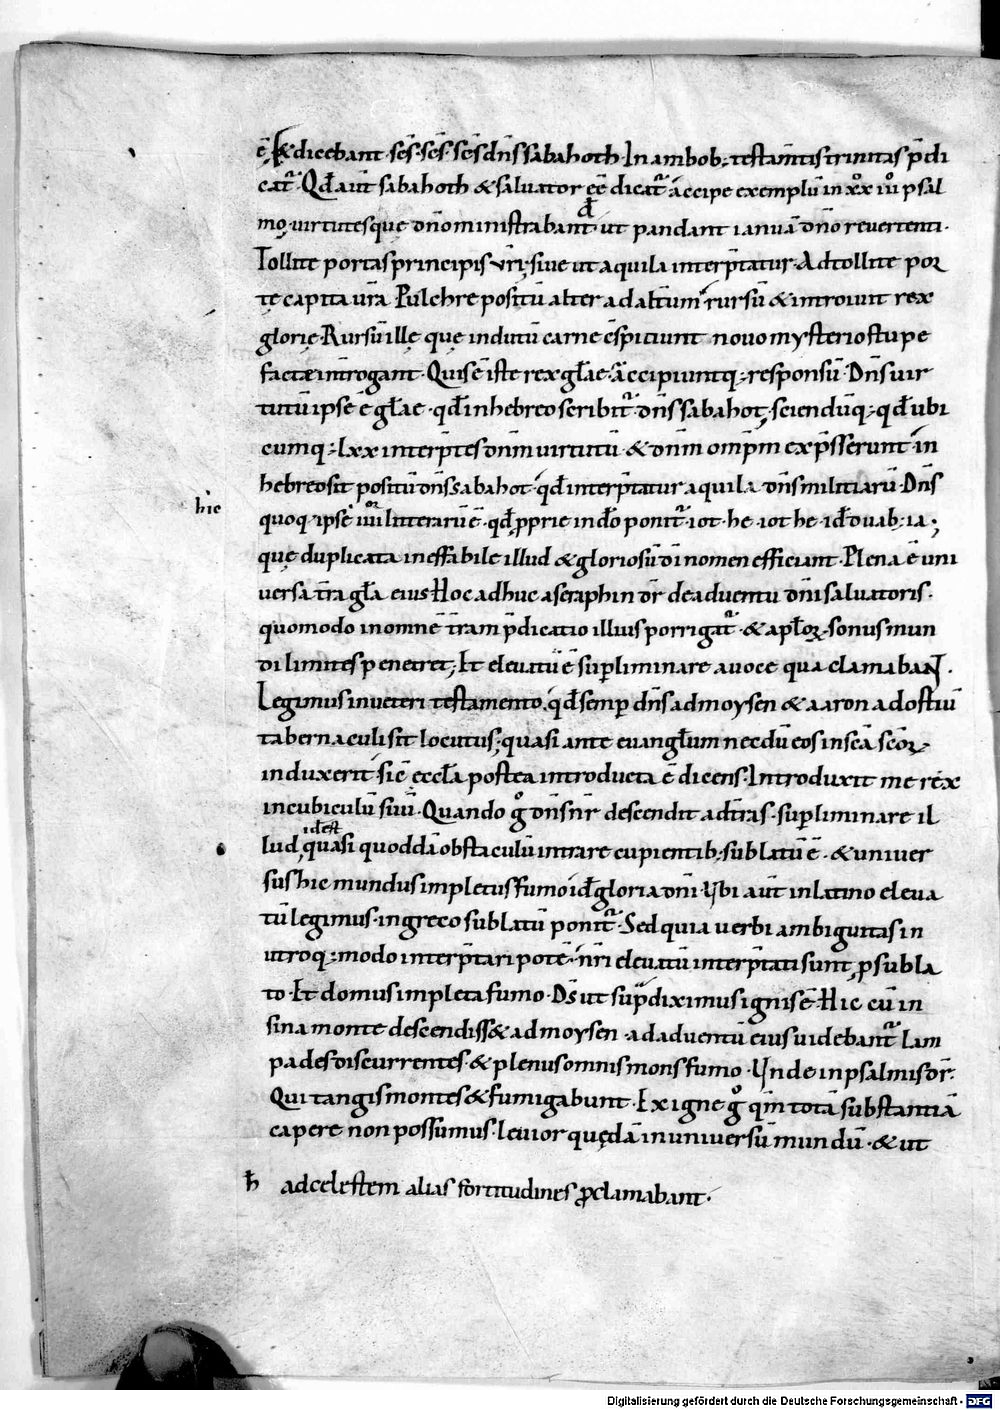 ē & dicebant · scs̄ · scs̄ · scs̄ dn̄s sabahoth · In ambob; testam̄tis trinitas p̄di
cat᷑ · Qđ aut̄ sabahoth & saluator eē dicat᷑ accipe exemplū in xx iii̊ psal
mo · uirtutesque dn̄o ministrabant · đ ut pandant ianuā dn̄o reuertenti ·
Tollite portas principis vr̄i; siue ut aquila interp̄tatur · Adtollite por
te capita ur̄a Pulchre positū alter ad alt̄um rursū & introiuit rex
glorię · Rursū illę quę indutū carne c̄spiciunt nouo mysterio stupe
factæ int̄rogant · Quis ē iste rex gl̄ae · Accipiuntq; responsū · Dn̄s uir
tutū ipse ē gl̄ae · qđ in hebreo scribit᷑ dn̄s sabahot; sciendūq; qđ ubi
cumq; lxx interp̄tes dn̄m uirtutū & dn̄m omp̄m exp̄sserunt in
hebreo sit positū dn̄s sabahot · qđ interp̄tatur aquila dn̄s militiarū · Dn̄s
hic
quoq; ipse iiii or litterarū ē · qđ pprie in dō ponit᷑ iot · he · iot he · iđ duab; ia;
quę duplicata ineffabile illud & gloriosū dī nomen efficiunt · Plena ē uni
uersa tr̄a gl̄a eius Hoc adhuc a seraphin dr̄ de aduentu dn̄i saluatoris ·
quomodo in omnē tr̄am p̄dicatio illius porrigat᷑ · & apl̄oꝝ sonus mun
di limites penetret; Et eleuatū ē sup̄liminare a uoce qua clamabant ·
Legimus in ueteri testamento, qđ semp dn̄s ad moysen & aaron ad ostiū
tabernaculi sit locutus; quasi ante euangl̄um necdū eos in scā scōꝝ
induxerit · sic eccl̄a postea introducta ē dicens · Introduxit me rex
in cubiculū suū · Quando g̊ dn̄s nr̄ descendit ad tr̄as · sup̄liminare il
lud, idest quasi quoddā obstaculū intrare cupientib; sublatū ē · & uniuer
sus hic mundus impletus fumo iđ gloria dn̄i · Ubi aut̄ in latino eleua
tū legimus · in greco sublatū ponit᷑ · Sed quia uerbi ambiguitas in
utroq; modo interp̄tari potē · nr̄i eleuatū interp̄tati sunt, p subla
to · Et domus impleta fumo · Ds̄ ut sup̄ diximus ignis ē · Hic cū in
sina monte descendiss& ad moysen · ad aduentū eius uidebant᷑ lam
pades discurrentes · & plenus omnis mons fumo · Unde in psalmis dr̄ ·
Qui tangis montes & fumigabunt · Ex igne g̊ qm̄ totā substantiā
capere non possumus · leuior quędā in uniuersū mundū · & ut
ħ ad celestem alias fortitudines pclamabant ·
Digitalisierung gefördert durch die Deutsche Forschungsgemeinschaft - DFG